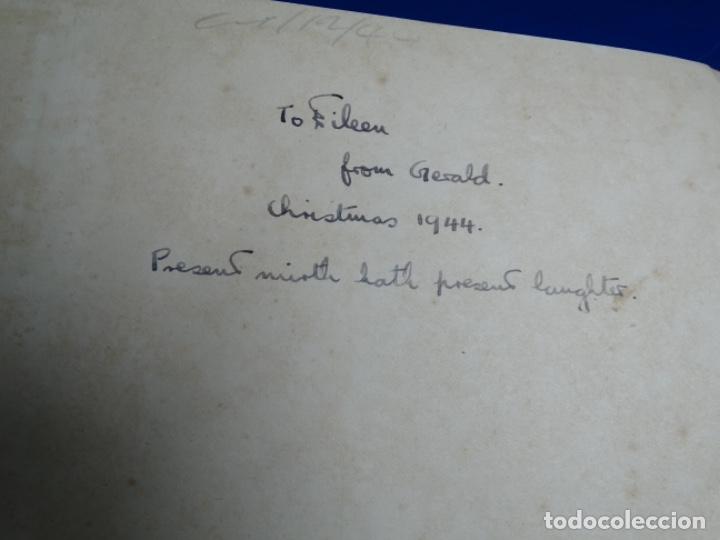 To Eileen
from Gerald.
Christmas 1944.
Present mirth hath present laughter.
todocoleccion
todocoleccion.net